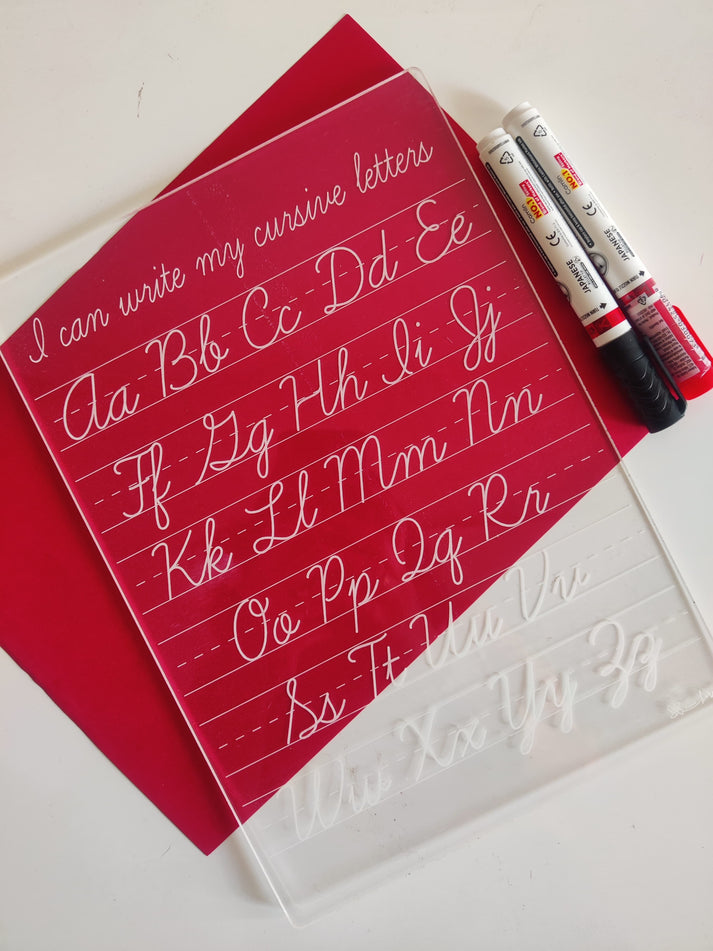 I can write my cursive letters
Aa Bb Cc Dd Ee
Ff Gg Hh Ii Jj
Kk Ll Mm Nn
Oo Pp Qq Rr
Ss Tt Uu Vv
Ww Xx Yy Zz
Camlin
NO.1
JAPANESE
Camlin
NO.1
JAPANESE